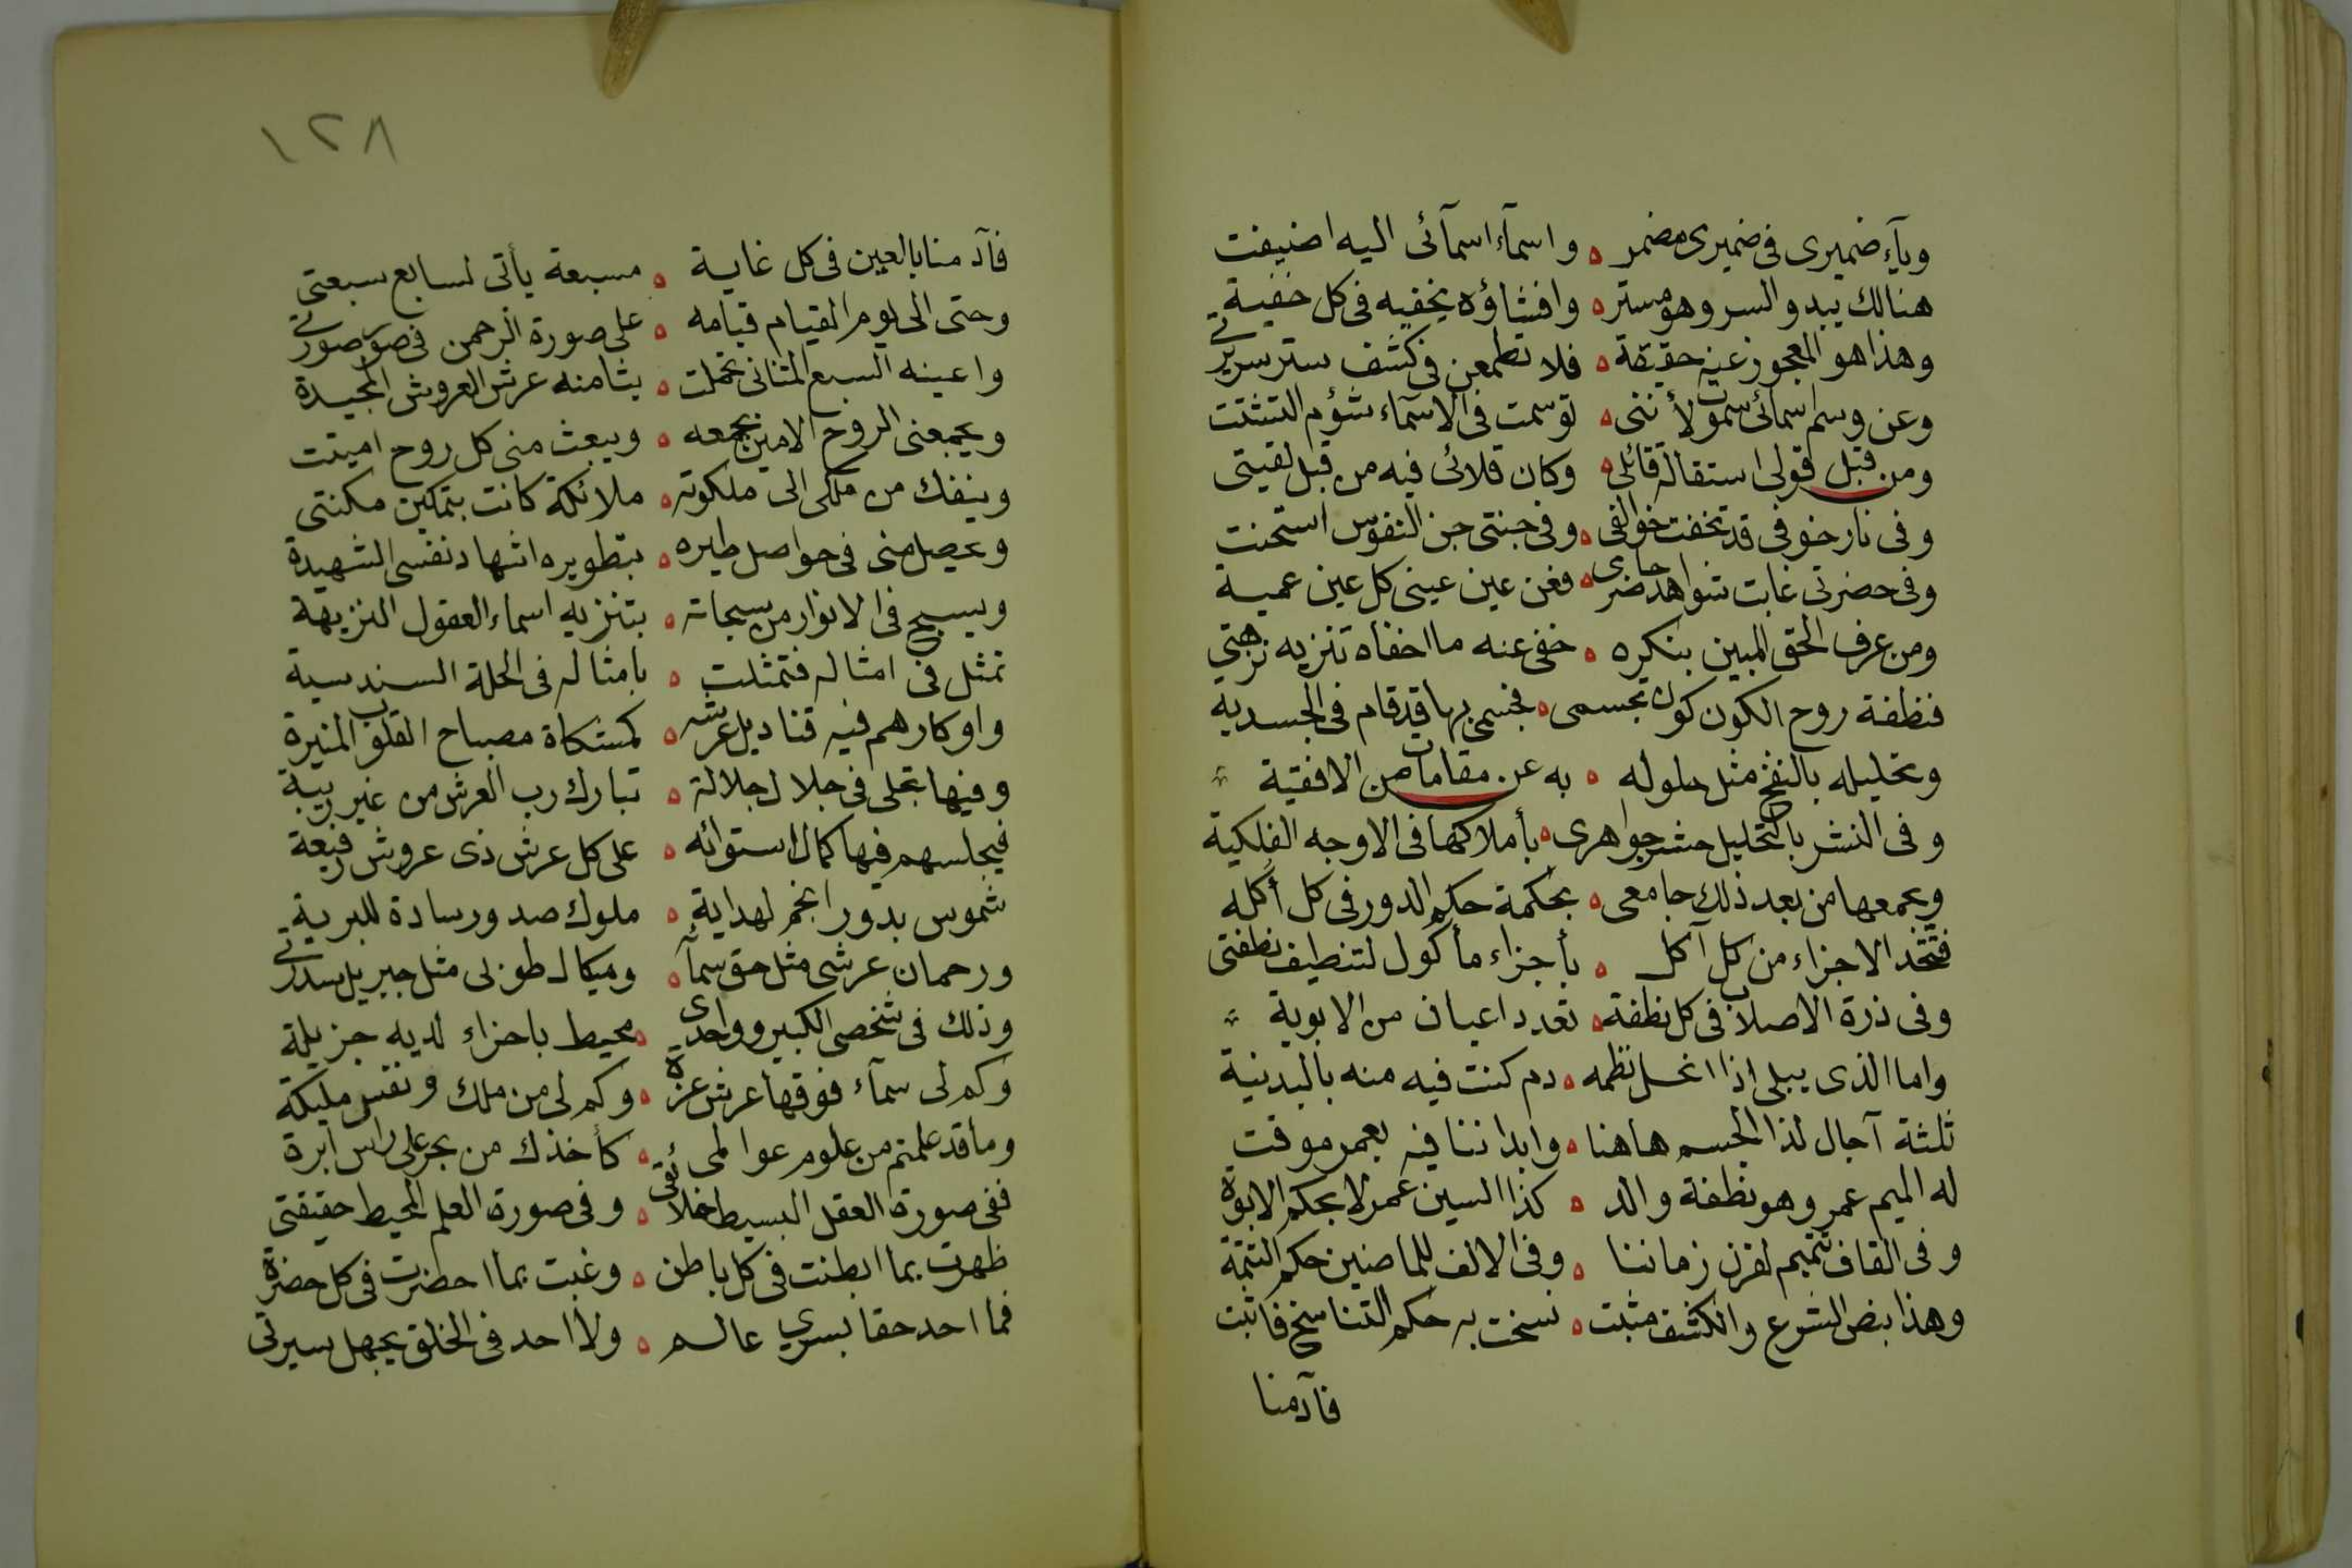 وبآء ضميرى فى ضميرى مضمر ه واسمآء اسمآئى اليه اضيفت
هنالك يبدو السر وهو مستر ه وافشاؤه يخفيه فى كل خفية
وهذا هو المعجوز عنه حقيقة ه فلا تطمعن فى كشف ستر سريرتى
وعن وسم اسمائى سموت لأننى ه توسمت فى الاسمآء شؤم التشتت
ومن قبل قولى استقاله قائلى ه وكان قلائى فيه من قبل لقيتى
وفى نار خوفى قد تخفت خوالفى ه وفى جنتى جن النفوس استجنت
وفى حضرتى غابت شواهد حاضرى ه فعن عين عينى كل عين عمية
ومن عرف الحق المبين بنكره ه خفى عنه ما اخفاه تنزيه نزهتي
فنطفة روح الكون كون تجسمى ه فجسمى بها قد قام فى الجسدية
وتحليله بالنفخ مثل حلوله ه به عن مقامات من الافقية
وفى النشر بالتحليل حشر جواهرى ه بأملاكها فى الاوجه الفلكية
ويجمعها من بعد ذلك جامعى ه بحكمة حكم الدور فى كل أكله
فتتخذ الاجزاء من كل آكل ه بأجزاء مأكول لتنطيف نطفتى
وفى ذرة الاصلاب فى كل نطفة ه تعدد اعيان من الابوية
واما الذى يبلى اذا انحل نظمه ه دم كنت فيه منه بالبدنية
ثلثة آجال لذا الجسم هاهنا ه وابداننا فيه بعمر موقت
له الميم عمر وهو نطفة والد ه كذا السين عمر لا بحكم الابوة
وفى القاف تتميم لقرن زماننا ه وفى الالف للماضين حكم التتمة
وهذا بنص الشرع والكشف مثبت ه نسخت به حكم التناسخ فاثبت
فآدمنا
١٢٨
فآدمنا بالعين فى كل غاية ه مسبعة يأتى لسابع سبعتى
وحتى الى يوم القيام قيامه ه على صورة الرحمن فى صور صورتى
واعينه السبع المثانى تحملت ه بثامنه عرش العروش المجيدة
ويجمعنى الروح الامين بجمعه ه ويبعث منى كل روح اميتت
وينفك من ملكى الى ملكوته ه ملائكة كانت بتمكين مكنتى
ويحصل منى فى حواصل طيره ه بتطويره اشهاد نفسى الشهيدة
ويسبح فى الانوار من سبحاته ه بتنزيه اسماء العقول النزيهة
تمثل فى امثاله فتمثلت ه بامثاله فى الحلة السندسية
واوكارهم فيه قناديل عرشه ه كمشكاة مصباح القلوب المنيرة
وفيها تجلى فى جلال جلالة ه تبارك رب العرش من غير ريبة
فيجلسهم فيها كمال استوائه ه على كل عرش ذى عروش رفيعة
شموس بدور انجم لهداية ه ملوك صدور سادة للبرية
ورحمان عرشى مثل حق سمآ ه وميكال طوزلى مثل جبريل سدرتى
وذلك فى شخصى الكبير وواحدى ه محيط باجزاء لديه جزيلة
وكم لى سمآء فوقها عرش عزة ه وكم لى من ملك ونفس مليكة
وما قد علمتم من علوم عوالمى ه كأخذك من بحر على راس ابرة
ففى صورة العقل البسيط خلائقى ه وفى صورة العلم المحيط حقيقتى
ظهرت بما ابطنت فى كل باطن ه وغبت بما احضرت فى كل حضرة
فما احد حقا بسري عالم ه ولا احد فى الخلق يجهل سيرتى